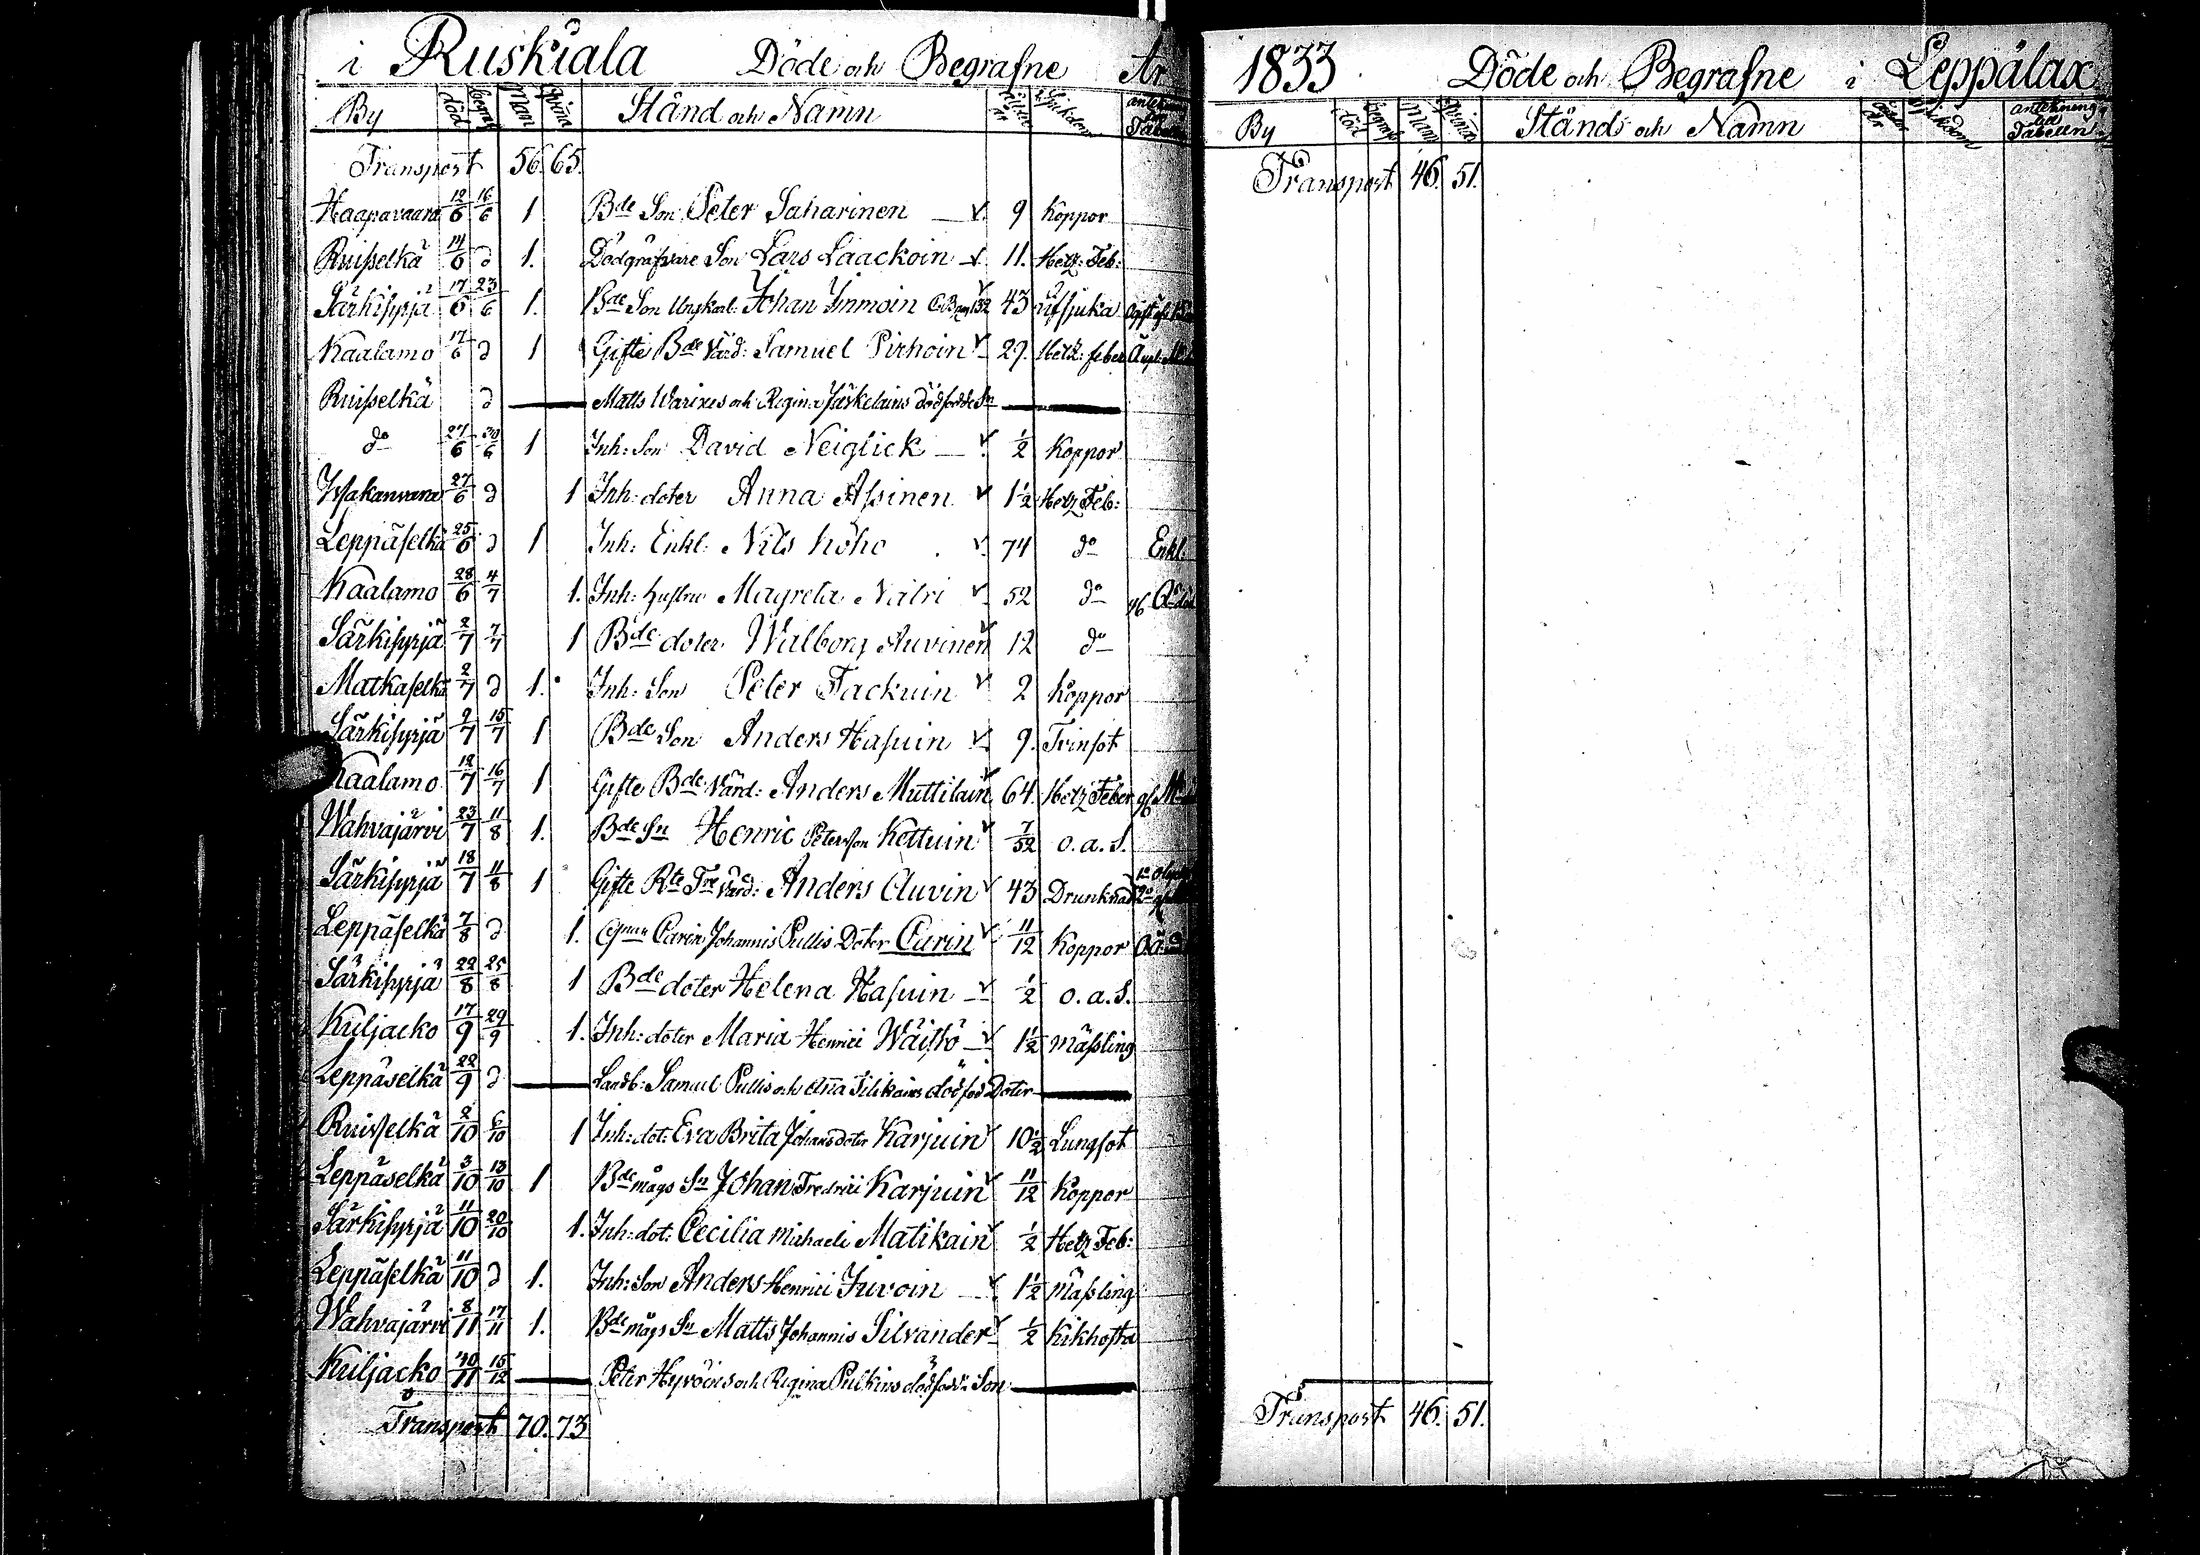 i Ruskiala Döde och Begrafne År
By död begraf Man Qvina Stånd och Namn Ålder år Sjukdom antekning Tabellen
Transport 56. 65.
Haapavaara 12/6 16/6 1 Bde Son Peter Saharinen 9 Koppor
Ruisselkä 14/6 d 1. Dödgräfvare Son Lars Laackoin 11. Hetz: Feb:
Särkisyrjä 17/6 23/6 1. Bde Son Ungkarl: Johan Immoin 43
Kaalamo 17/6 d 1 Gifte Bde Värd: Samuel Pirhoin 29. Hetz: feber
Ruisselkä d Matts Warixes och Regina Jäskelains dödfödde Sn
do 27/6 30/6 1 Inh: Son David Neiglick 1/2 Koppor
27/6 d 1 Inh: doter Anna Assinen 1 1/2 Hetz Feb:
Leppäselkä 25/6 d 1 Inh: Enkl: Nils Höhö 74 do Enkl.
Kaalamo 28/6 4/7 1. Inh: hustru Magreta Nätri 52 do
Särkisyrjä 2/7 7/7 1 Bde doter Walborg Auvinen 12 do
Matkaselkä 2/7 d 1. Inh: Son Peter Tackuin 2 Koppor
Särkisyrjä 9/7 15/7 1 Bde Son Anders Hasuin 9. Tvinsot
Kaalamo 12/7 16/7 1 Gifte Bde Värd: Anders Muttilain 64. Hetz Feber
Wahvajärvi 23/7 11/8 1. Bde Sn Henric Petersson Kettuin 7/52 o.a.S.
Särkisyrjä 18/7 11/8 1 Gifte Rte Värd: Anders Auvin 43 Drunknad
Leppäselkä 7/8 d 1. Carin Johannis Pullis Doter Carin 11/12 Koppor
Särkisyrjä 22/8 25/8 1 Bde doter Helena Hasuin 1/2 o.a.S.
Kuljacko 17/9 29/9 1. Inh: doter Maria Henrici Wäistö 1 1/2 mässling
Leppäselkä 22/9 d Landb: Samuel Pullis och Anna Silikains dödfod Doter
Ruisselkä 2/10 6/10 1 Inh: dot: Eva Brita Johansdoter Karjuin 10 1/2 Lungsot
Leppäselkä 3/10 13/10 1 Bde mågs Sn Johan Fredrici Karjuin 11/12 Koppor
Särkisyrjä 11/10 20/10 1. Inh: dot: Cecilia Michaeli Matikain 1/2 Hetz Feb:
Leppäselkä 11/10 d 1. Inh: Son Anders Henrici Juvoin 1 1/2 mässling
Wahvajärvi 8/11 17/11 1. Bde mågs Sn Matts Johannis Silvander 1/2 Kikhosta
Kuljacko 30/11 15/12 Peter Hyvöins och Regina Pulkins dödfödde Son
Transport 70. 73
1833 Döde och Begrafne i Leppälax
By död begraf Mann Qvina Stånd och Namn Ålder år Sjukdom antekning till Tabellen
Transport 46. 51.
Transport 46. 51.